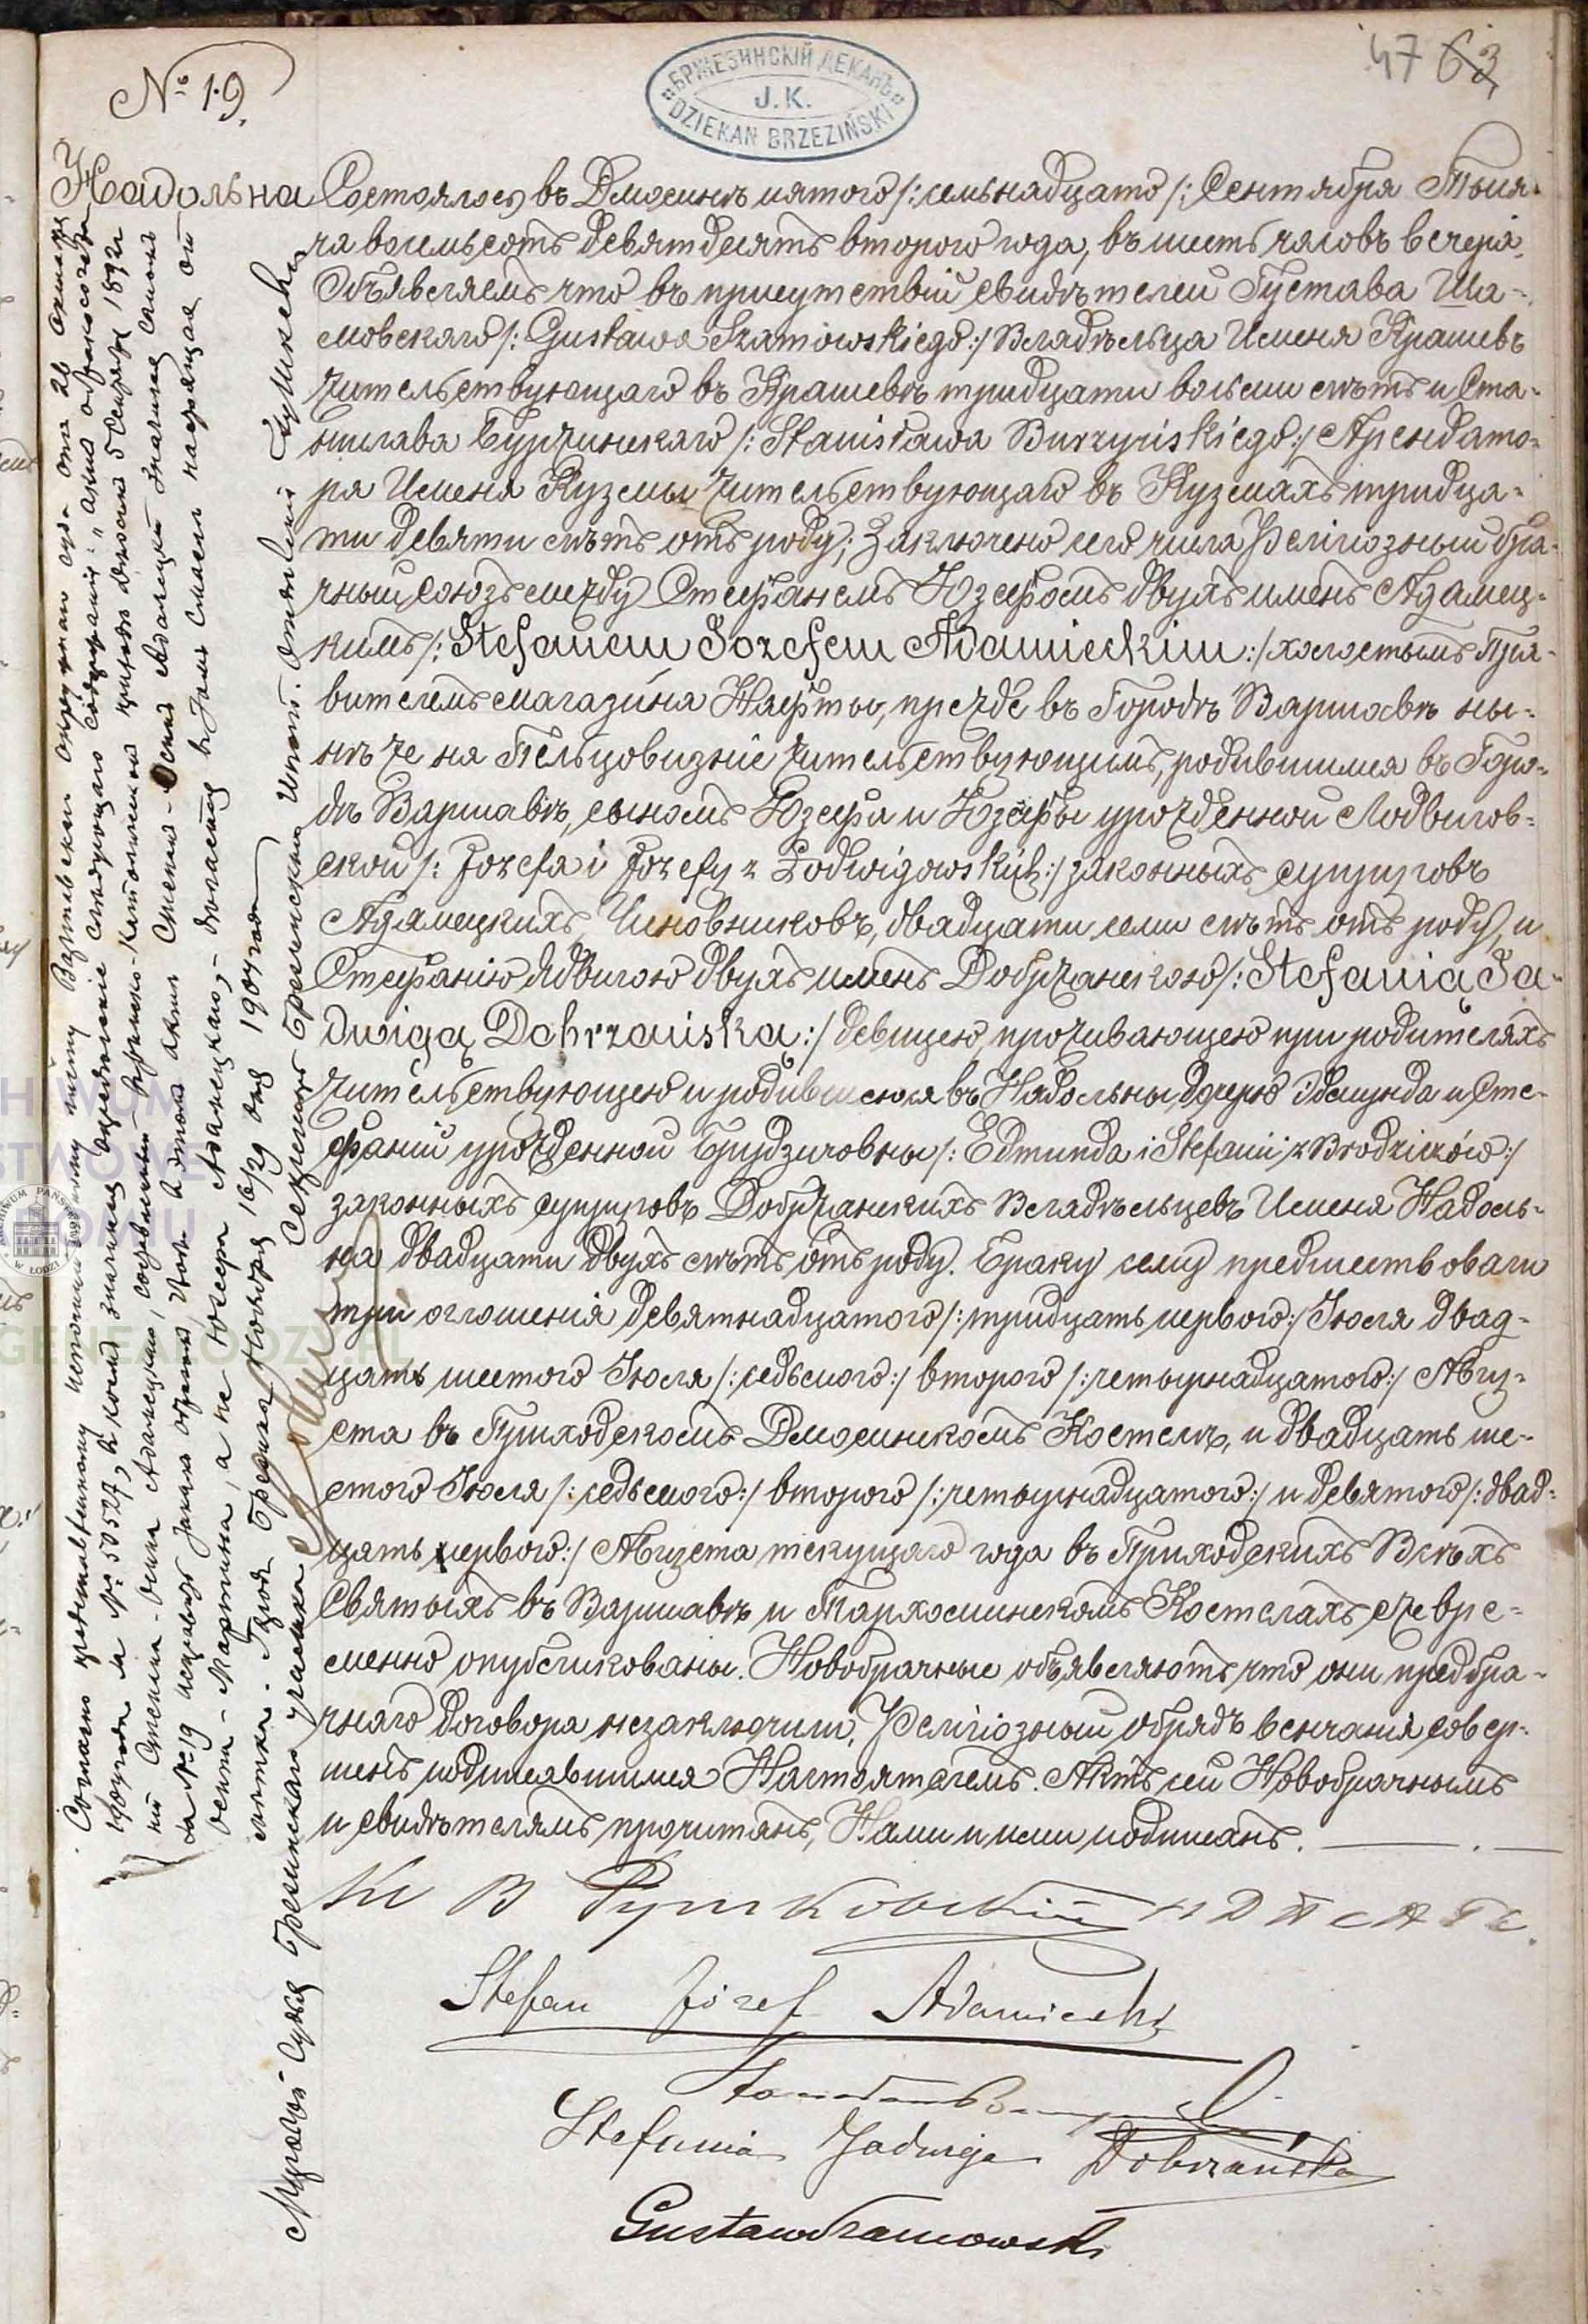 47 63
№ 19.
"БРЖЕЗИНСКІЙ ДЕКАНЪ"
J. K.
DZIEKAN BRZEZIŃSKI
Надольна
Состоялось въ Дмосинѣ пятого /: семьнадцато /: Сентября Тыся-
ча восемьсотъ девятдесятъ второго года, въ шесть часовъ вечера.
Объявляемъ что въ присутствіи свидѣтелей Густава Ша-
мовскаго /: Gustawa Szamowskiego :/ Владѣльца Именя Крашевъ
жительствующаго въ Крашевѣ тридцати восьми лѣтъ и Ста-
нислава Буржинскаго /: Stanisława Burzyńskiego :/ Арендато-
ра Именя Куземы жительствующаго въ Куземахъ тридца-
ти девяти лѣтъ отъ роду; Заключено сего числа Религіозный бра-
чный союзъ между Стефаномъ Юзефомъ двухъ именъ Адамец-
кимъ /: Stefanem Jozefem Adamieckim :/ холостымъ Пра-
вителемъ магазина Нафты, прежде въ Городѣ Варшавѣ ны-
нѣ же на Пельцовизніе жительствующимъ, родившимся въ Горо-
дѣ Варшавѣ, сыномъ Юзефа и Юзефы урожденной Лодвигов-
ской /: Jozefa i Jozefy z Lodwigowskich :/ законныхъ супруговъ
Адамецкихъ, Чиновниковъ, двадцати семи лѣтъ отъ роду, и
Стефанію Ядвигою двухъ именъ Добржанскою /: Stefanią Ja-
dwigą Dobrzańską :/ девицею, проживающею при родителяхъ
жительствующею и родившеюся въ Надольны, дочерю Эдмунда и Сте-
фаніи урожденной Бродзичовны /: Edmunda i Stefanii z Brodziców :/
законныхъ супруговъ Добржанскихъ Владѣльцевъ Именя Надоль-
на двадцати двухъ лѣтъ отъ роду. Браку сему предшествовали
три оглошенія девятнадцатого /: тридцать первого :/ Іюля двад-
цать шестого Іюля /: седьмого :/ второго /: четырнадцатого :/ Авгу-
ста въ Приходскомъ Дмосинскомъ Костелѣ, и двадцать ше-
стого Іюля /: седьмого :/ второго /: четырнадцатого :/ и девятого /: двад-
цать первого :/ Августа текущаго года въ Приходскихъ Всѣхъ
Святыхъ въ Варшавѣ и Тархоминскомъ Костелахъ
менно опубликованы. Новобрачные объявляютъ что они предбра-
чнаго договора незаключили, Религіозный обрядъ венчанія совер-
шенъ подписавшимся Настоятелемъ. Актъ сей Новобрачнымъ
и свидѣтелямъ прочитанъ, Нами и ими подписанъ.
Кс В
Stefan Józef Adamiecki
Stefania Jadwiga Dobrzańska
Gustaw Szamowski
Согласно представленному исполнительному листу Варшавского окружнаго суда отъ 26 Октября
1904 года за № 50527, въ коемъ значится опредѣленіе слѣдующаго содержанія: "актъ о бракосочета-
ніи Стефана-Осипа Адамецкаго, совершенный Римско-Католическомъ приходѣ Дмосинъ 5 Сентября 1892 г
за № 19 исправить такимъ образомъ, чтобы в этомъ актѣ Стефанъ-Осипъ Адамецкій значился сыномъ
Осипа-Мартина, а не Юзефа Адамецкаго,-
Брезины Ноября 16/29 дня 1904 года
Мировой Судья Брезинскаго участка
Секретарь Брезинской Ипот. отдѣленія